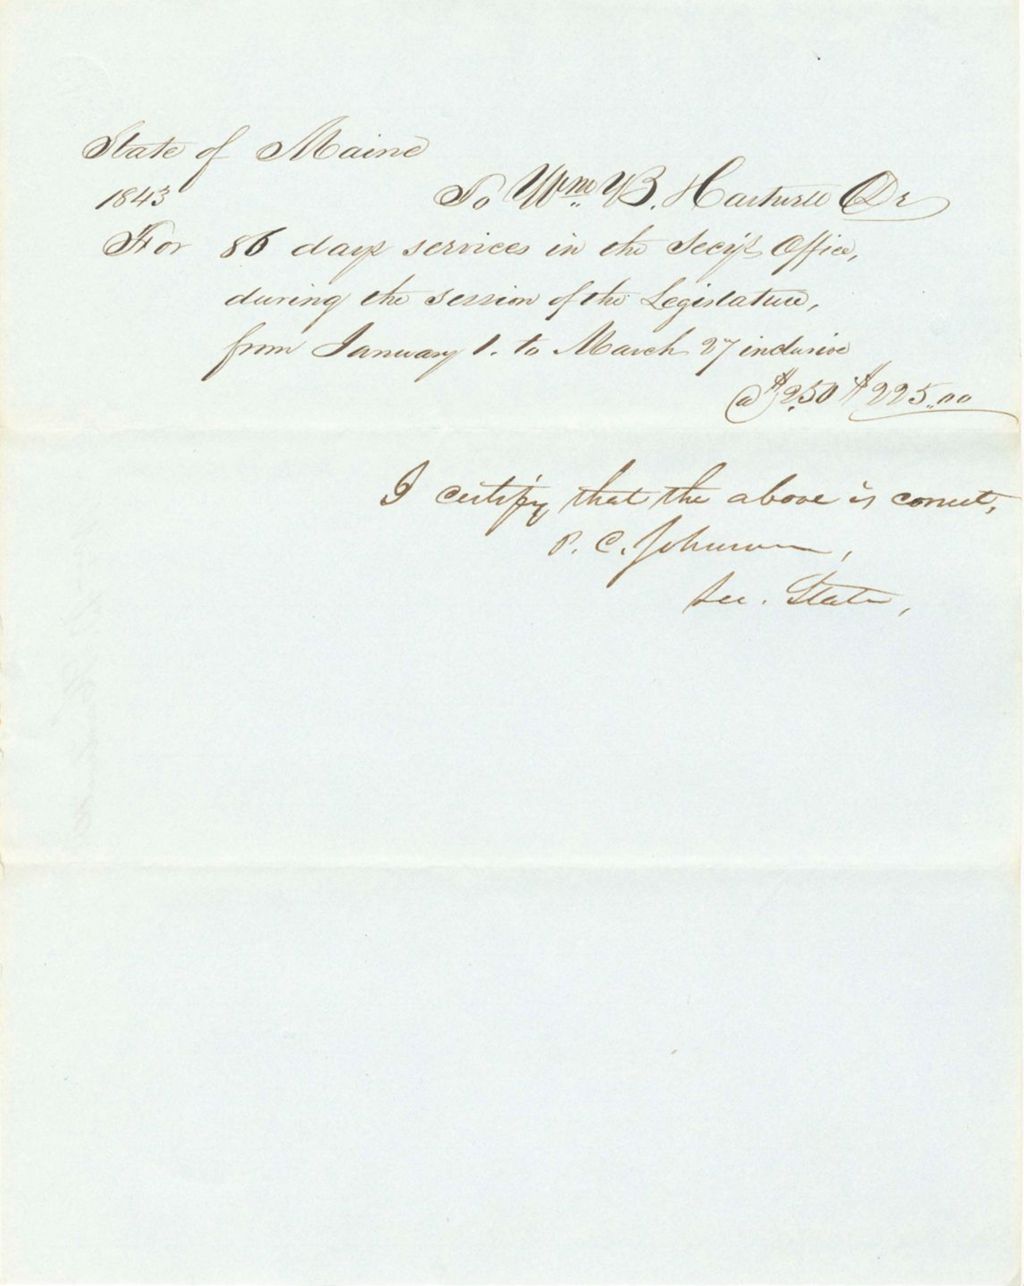 State of Maine
1843 To Wm. B. Hartwell Dr
For 86 days services in the Secy's Office,
during the session of the Legislature,
from January 1. to March 27 inclusive
@ $2,50 $225.00
I certify that the above is correct,
P. C. Johnson,
Sec. State,